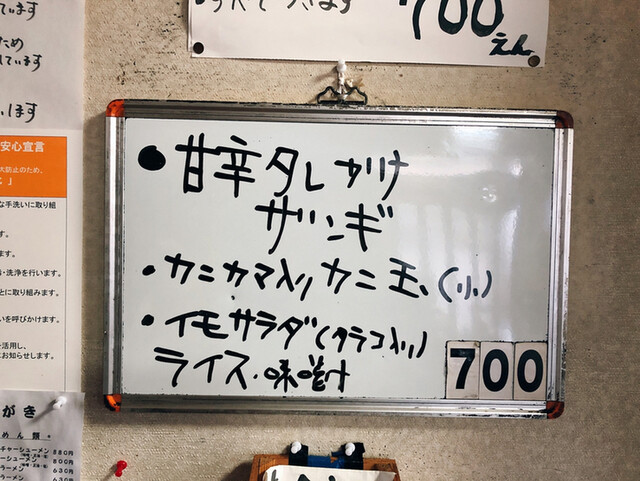 ています
ため
ています
います
700
えん
安心宣言
大防止のため、
な手洗いに取り組
す。
ます。
・洗浄を行います。
とに取り組みます。
いを呼びかけます。
を活用し、
にお知らせします。
● 甘辛タレかけ
ザンギ
・カニカマ入りカニ玉(小)
・イモサラダ(タラコ入り)
ライス・味噌汁
700
がき
めん類
チャーシューメン 880円
ーシューメン 800円
ラーメン 630円
ラーメン 630円